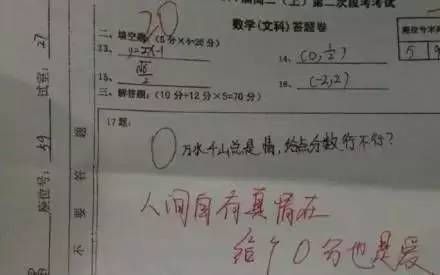 高二（上）第二次段考考试
数学(文科)答题卷
20
二、填空题:(5分×4=20分)
13. y=2x-1
14. (0,½)
15.
16. (-2,2)
三、解答题:(10分+12分×5=70分)
17题:
0
万水千山总是情,给点分数行不行?
人间自有真情在
给个0分也是爱
试室: 27
座位号: 29
不要答题